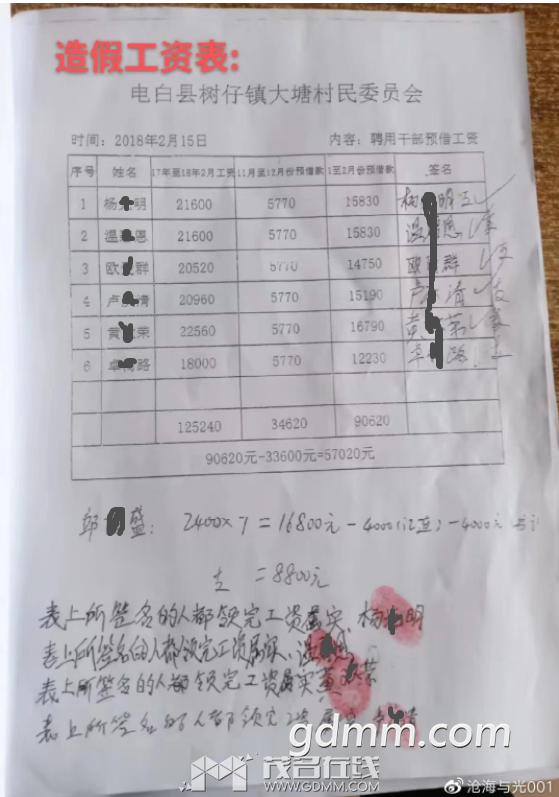 造假工资表:
电白县树仔镇大塘村民委员会
时间：2018年2月15日 内容：聘用干部预借工资
序号 姓名 17年至18年2月工资 11月至12月份预借款 1至2月份预借款 签名
1 杨 明 21600 5770 15830 杨 明
2 温 恩 21600 5770 15830 温 恩
3 欧 群 20520 5770 14750 欧 群
4 卢 清 20960 5770 15190 卢 清
5 黄 荣 22560 5770 16790 黄 荣
6 卓 路 18000 5770 12230 卓 路
125240 34620 90620
90620元-33600元=57020元
盛： 2400×7=16800元-4000 -4000元
=8800元
表上所签名的人都领完工资属实 杨 明
表上所签名的人都领完工资属实 温
表上所签名的人都领完工资属实 黄 荣
表上所签名的人都领完工资
gdmm.com
茂名在线
WWW.GDMM.COM
沧海与光001